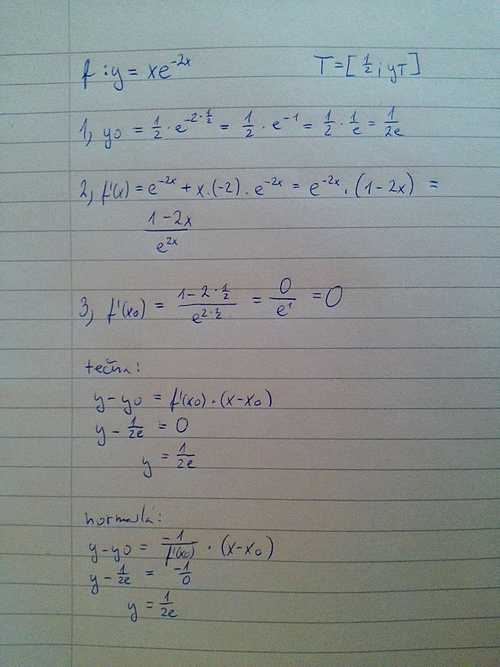 f: y = xe^{-2x}    T = [1/2; y_T]
1, y0 = 1/2 · e^{-2·1/2} = 1/2 · e^{-1} = 1/2 · 1/e = 1/2e
2, f'(x) = e^{-2x} + x·(-2)·e^{-2x} = e^{-2x}·(1-2x) =
(1-2x)/e^{2x}
3, f'(x0) = (1-2·1/2)/e^{2·1/2} = 0/e^1 = 0
tečna:
y-y0 = f'(x0)·(x-x0)
y - 1/2e = 0
y = 1/2e
normála:
y-y0 = -1/f'(x0) · (x-x0)
y - 1/2e = -1/0
y = 1/2e